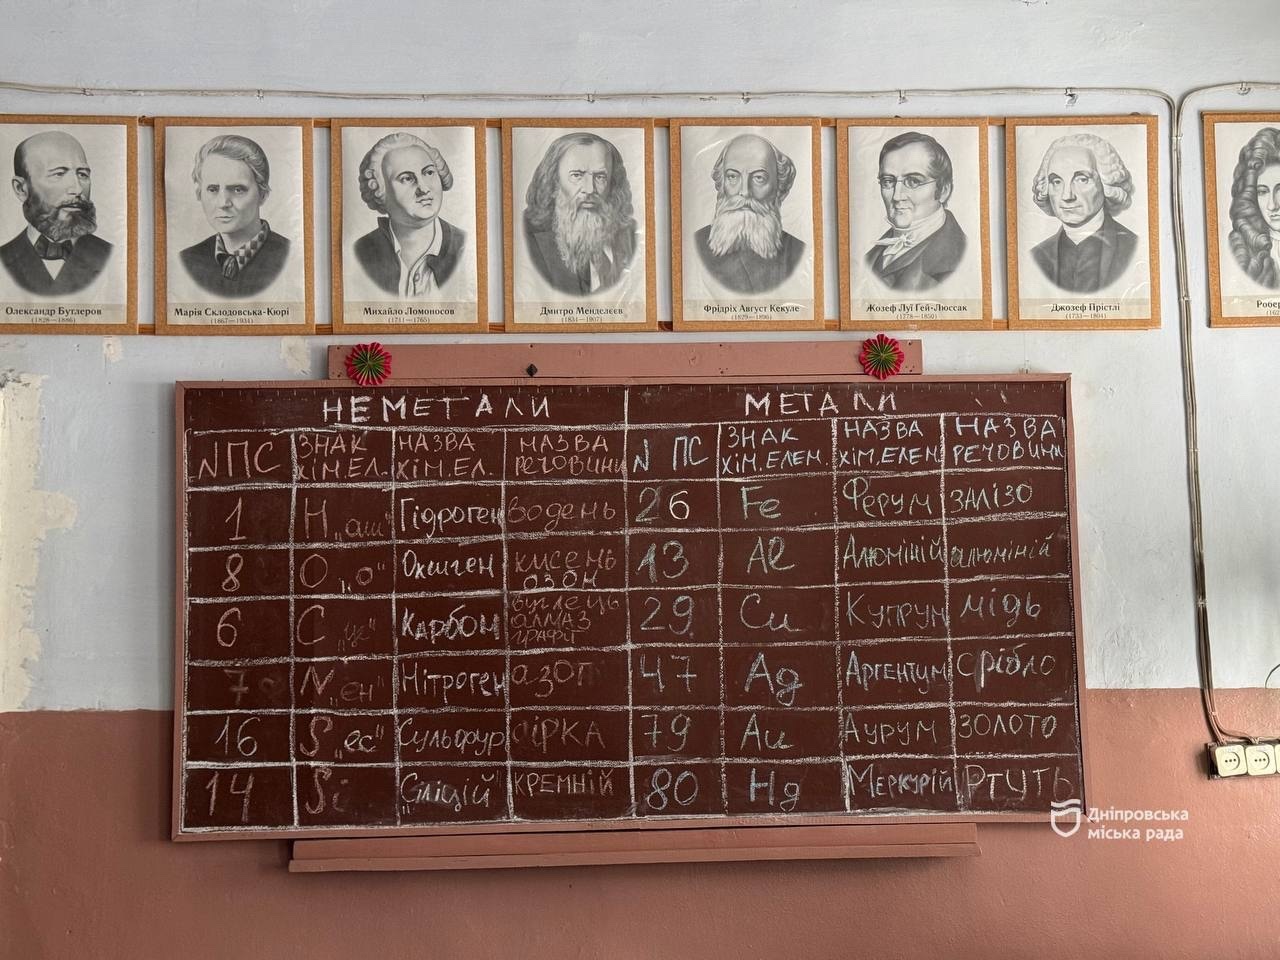 Олександр Бутлеров
(1828—1886)
Марія Склодовська-Кюрі
(1867—1934)
Михайло Ломоносов
(1711—1765)
Дмитро Менделєєв
(1834—1907)
Фрідріх Август Кекуле
(1829—1896)
Жозеф Луї Гей-Люссак
(1778—1850)
Джозеф Прістлі
(1733—1804)
НЕМЕТАЛИ МЕТАЛИ
N ПС ЗНАК ХІМ.ЕЛ. НАЗВА ХІМ.ЕЛ. НАЗВА РЕЧОВИНИ N ПС ЗНАК ХІМ.ЕЛЕМ. НАЗВА ХІМ.ЕЛЕМ НАЗВА РЕЧОВИНИ
1 H „аш“ Гідроген водень 26 Fe Ферум ЗАЛІЗО
8 O „о“ Оксиген кисень озон 13 Al Алюміній алюміній
6 C „це“ Карбон вуглець алмаз графіт 29 Cu Купрум мідь
7 N „ен“ Нітроген азот 47 Ag Аргентум срібло
16 S „ес“ Сульфур сірка 79 Au Аурум золото
14 Si „Сіліцій“ КРЕМНІЙ 80 Hg Меркурій РТУТЬ
Дніпровська
міська рада